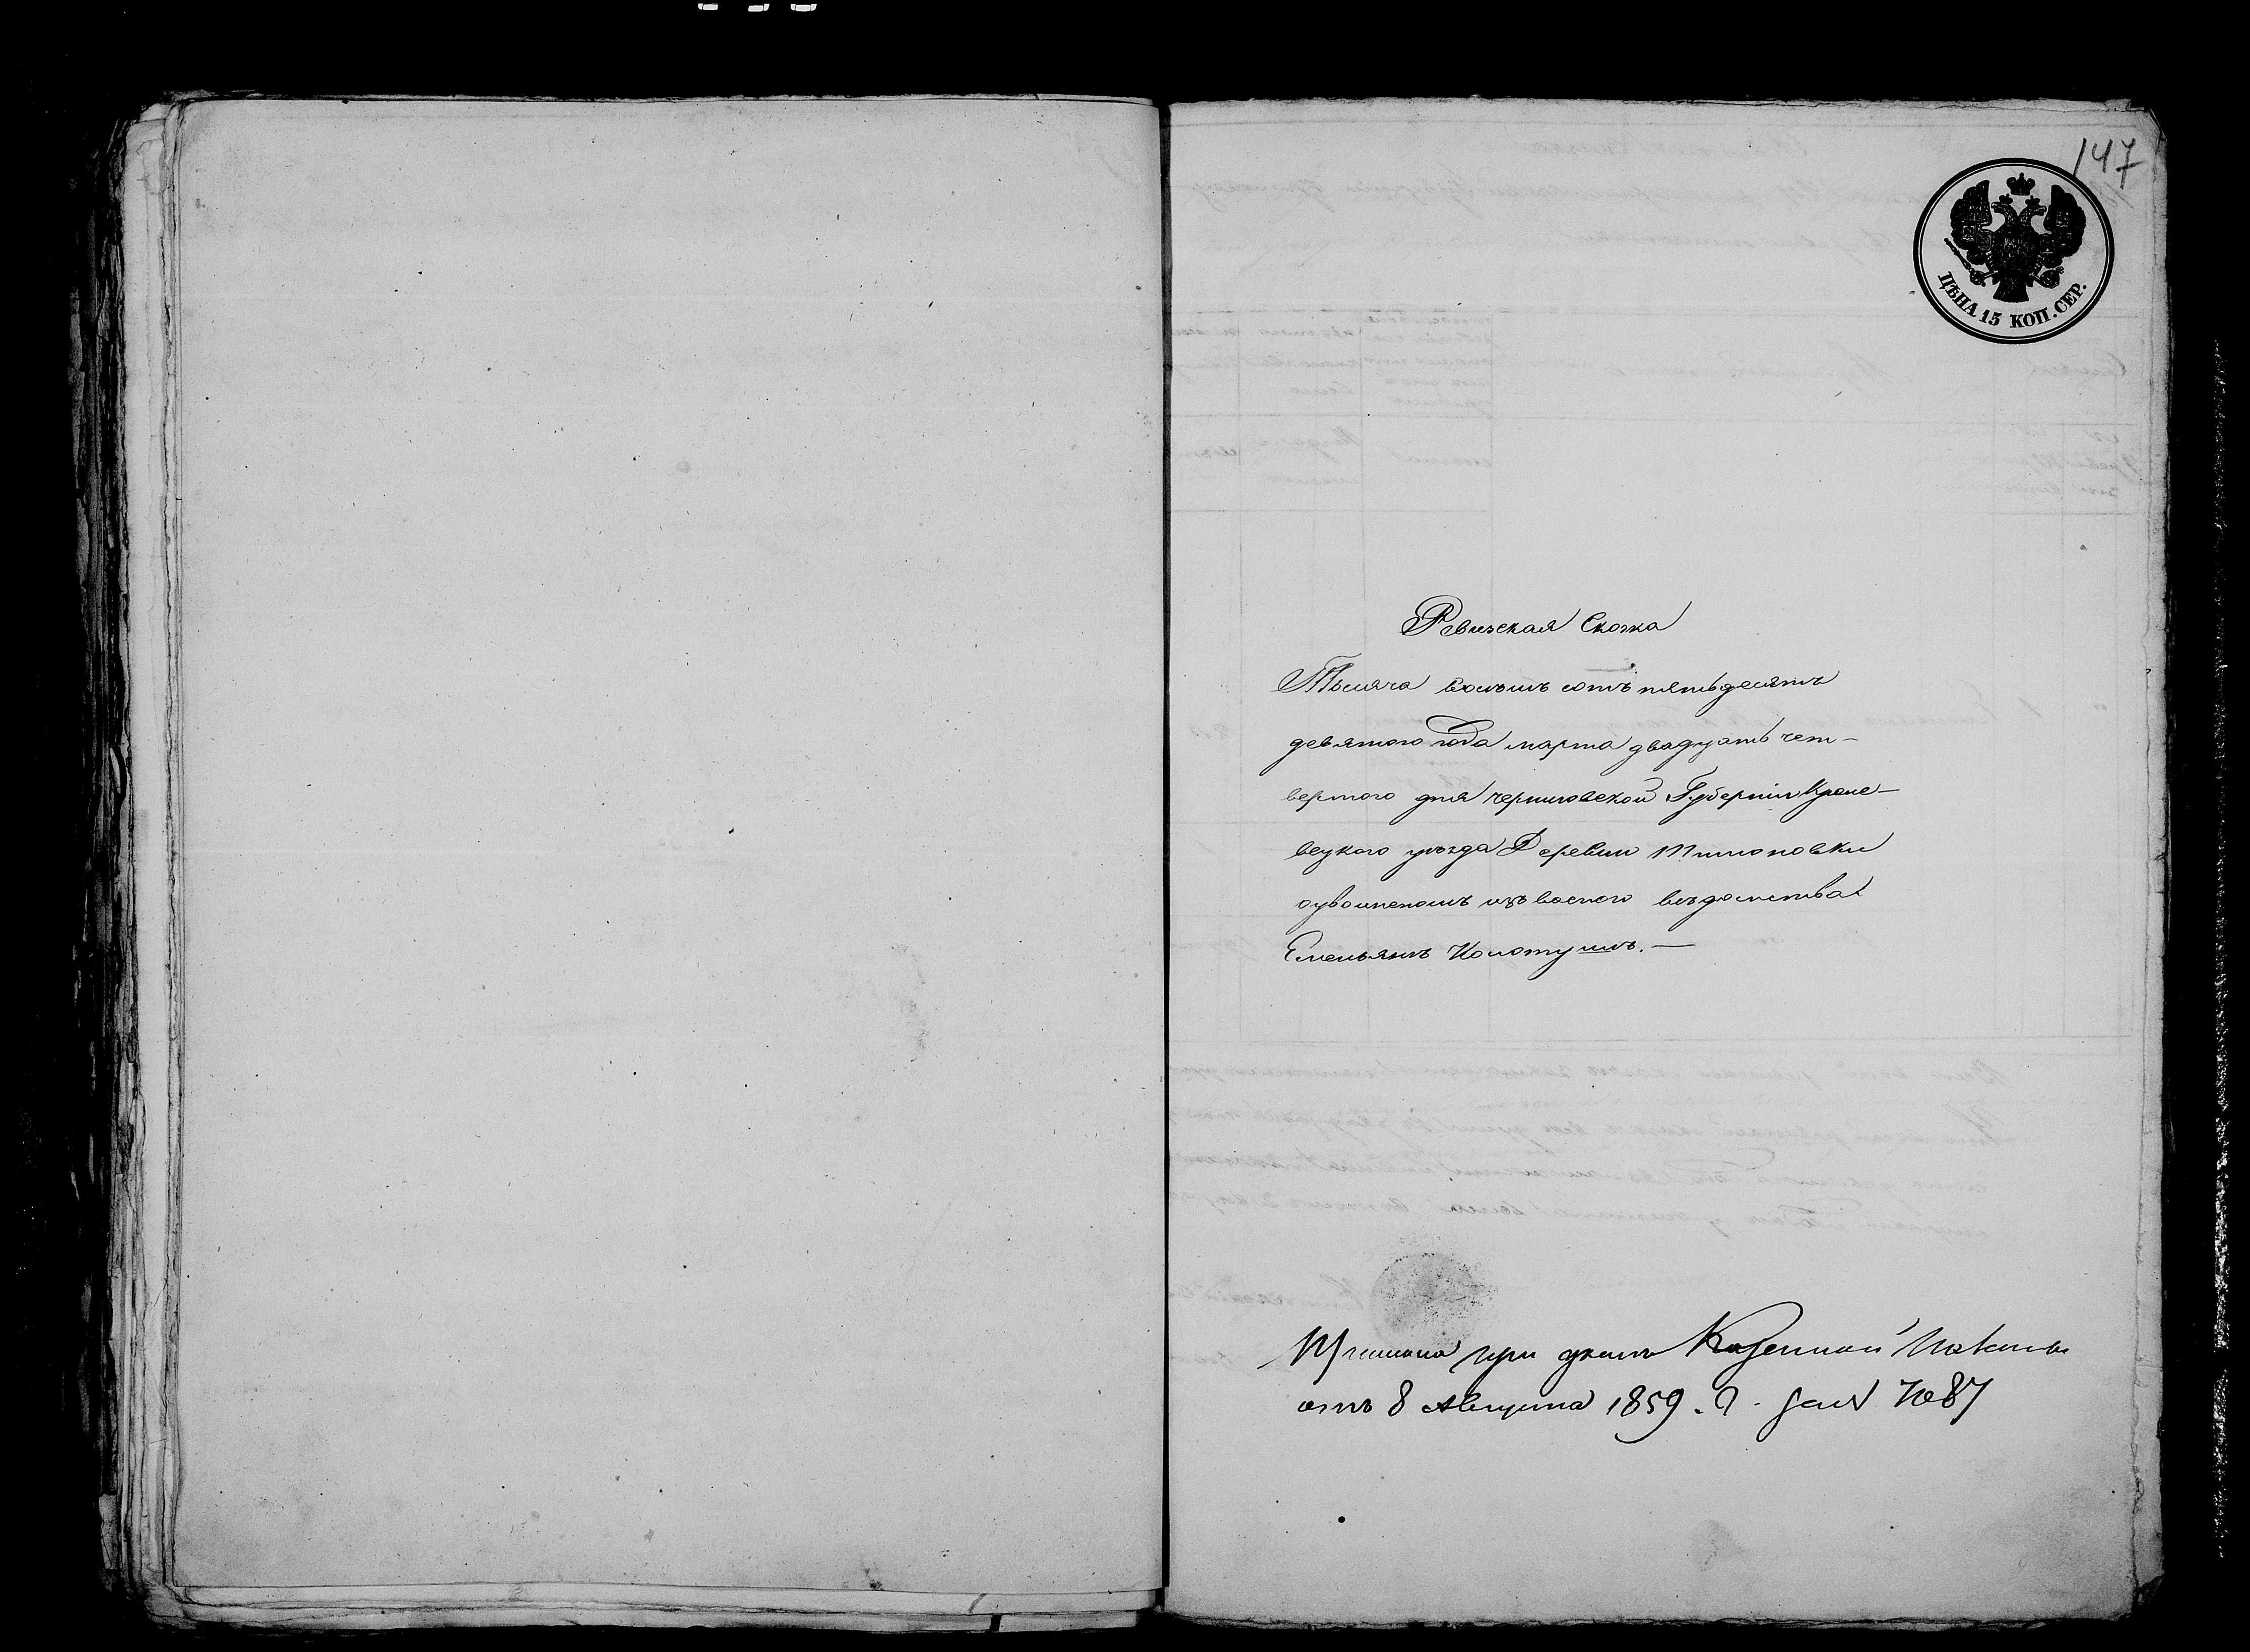 147
ЦѢНА 15 КОП. СЕР.
Ревизская Сказка
Тысяча восемь сотъ пятьдесятъ
девятого года марта двадцать чет-
вертого дня черниговской Губерніи Кроле-
вецкого уѣзда Деревни Тимоновки
о уволненомъ изъ военого вѣдомства
Емельянъ Колотушъ.—
при Казенной Палаты
отъ 8 Августа 1859. г. за № 87